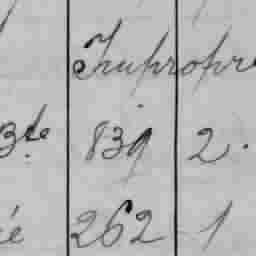 Impropre
3te 839 2.
é 262 1